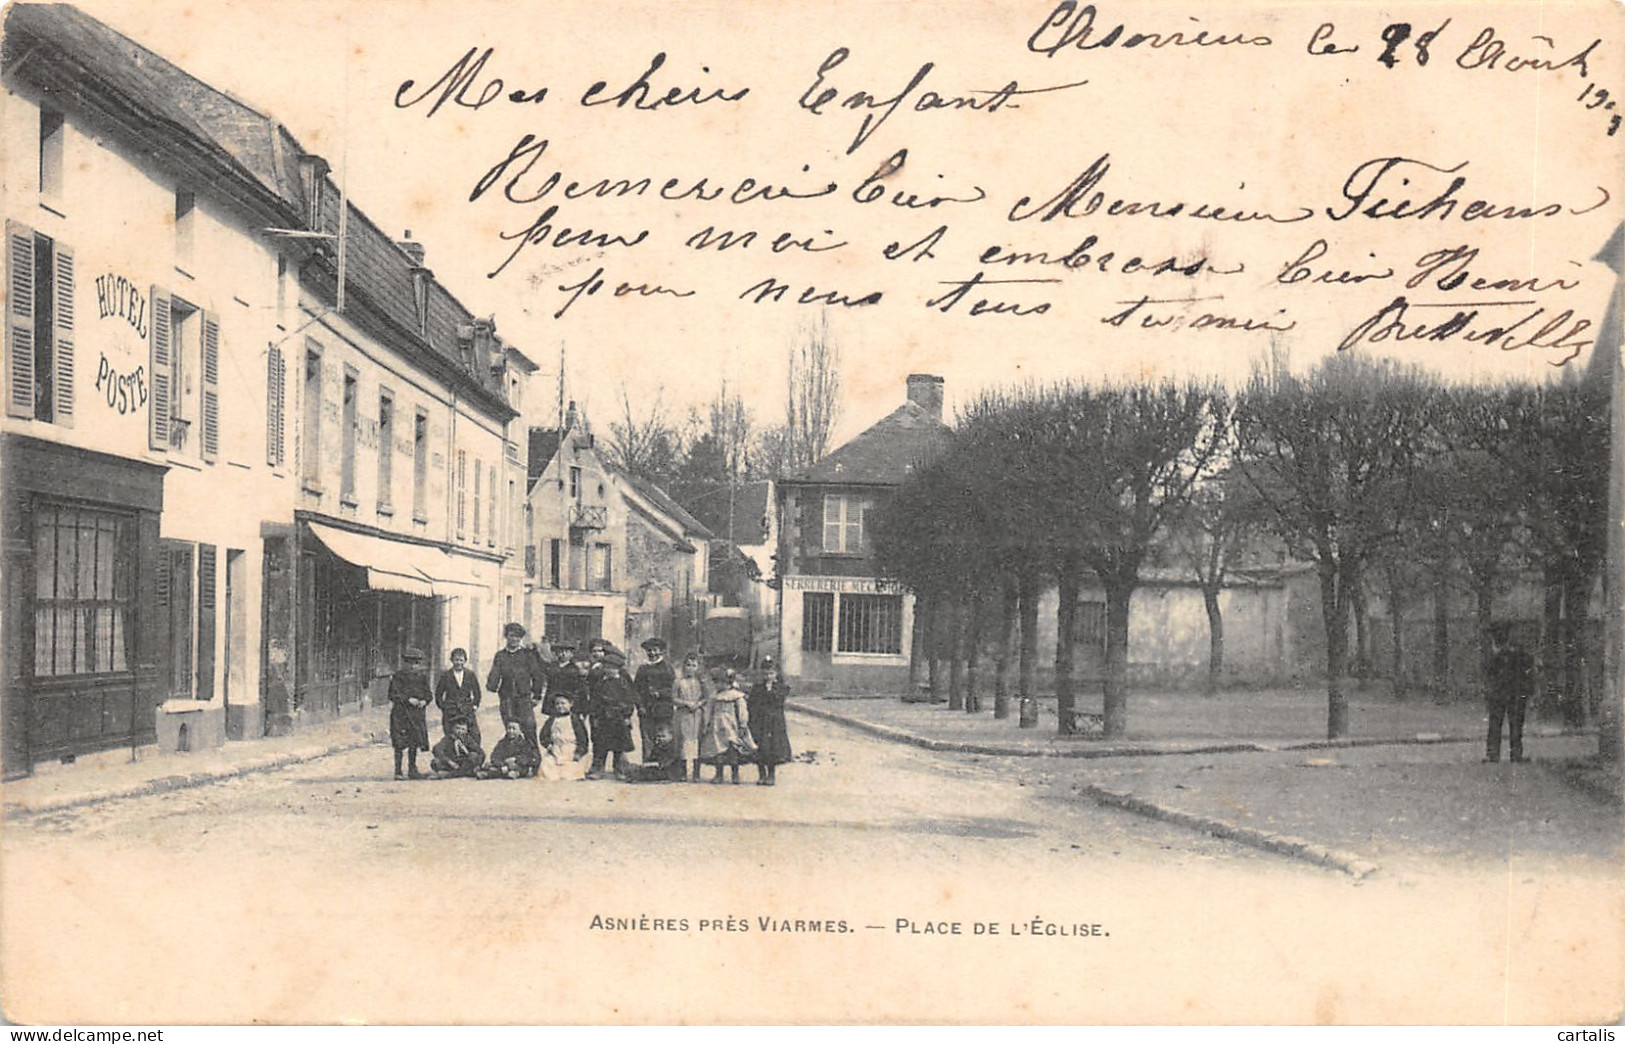 Asnieres le 28 Août
190
Mes chers Enfant
Remerciei bien Monsieur Fichans
pour moi et embrasse bien Remi
pour nous tous
Bretteville
HOTEL
POSTE
SERRURERIE MECANIQUE
ASNIÈRES PRÈS VIARMES. — PLACE DE L'ÉGLISE.
cartalis